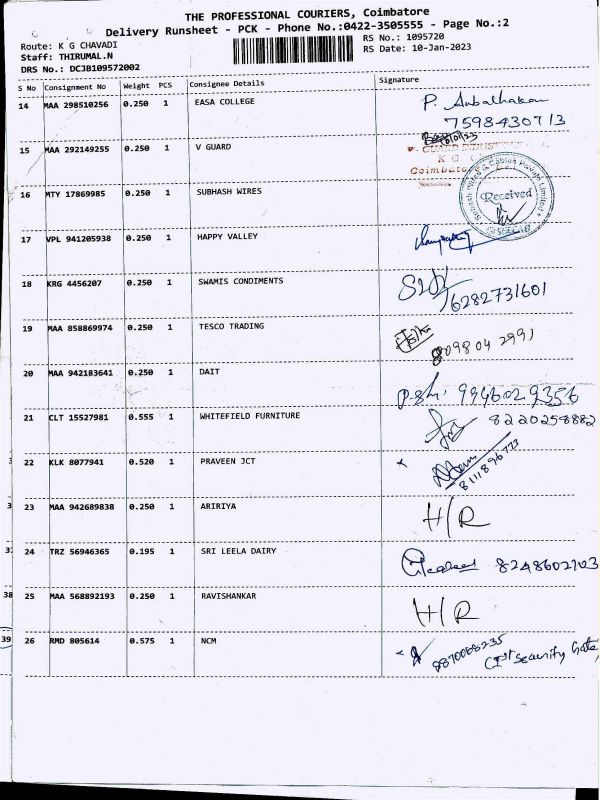 THE PROFESSIONAL COURIERS, Coimbatore
Delivery Runsheet - PCK - Phone No.:0422-3505555 - Page No.:2
Route: K G CHAVADI
RS No.: 1095720
Staff: THIRUMAL.N
RS Date: 10-Jan-2023
DRS No.: DCJB109572002
S No Consignment No Weight PCS Consignee Details Signature
14 MAA 298510256 0.250 1 EASA COLLEGE
7598430713
15 MAA 292149255 0.250 1 V GUARD
K G
Coimbato
16 MTY 17869985 0.250 1 SUBHASH WIRES
Received
17 VPL 941205938 0.250 1 HAPPY VALLEY
18 KRG 4456207 0.250 1 SWAMIS CONDIMENTS
6282731601
19 MAA 858869974 0.250 1 TESCO TRADING
809804 2991
20 MAA 942183641 0.250 1 DAIT
9946029356
21 CLT 15527981 0.555 1 WHITEFIELD FURNITURE
8220258882
22 KLK 8077941 0.520 1 PRAVEEN JCT
8111896773
23 MAA 942689838 0.250 1 ARIRIYA H/R
24 TRZ 56946365 0.195 1 SRI LEELA DAIRY
8248602103
38 25 MAA 568892193 0.250 1 RAVISHANKAR H/R
39 26 RMD 805614 0.575 1 NCM
8870068235
(1st security Gate)